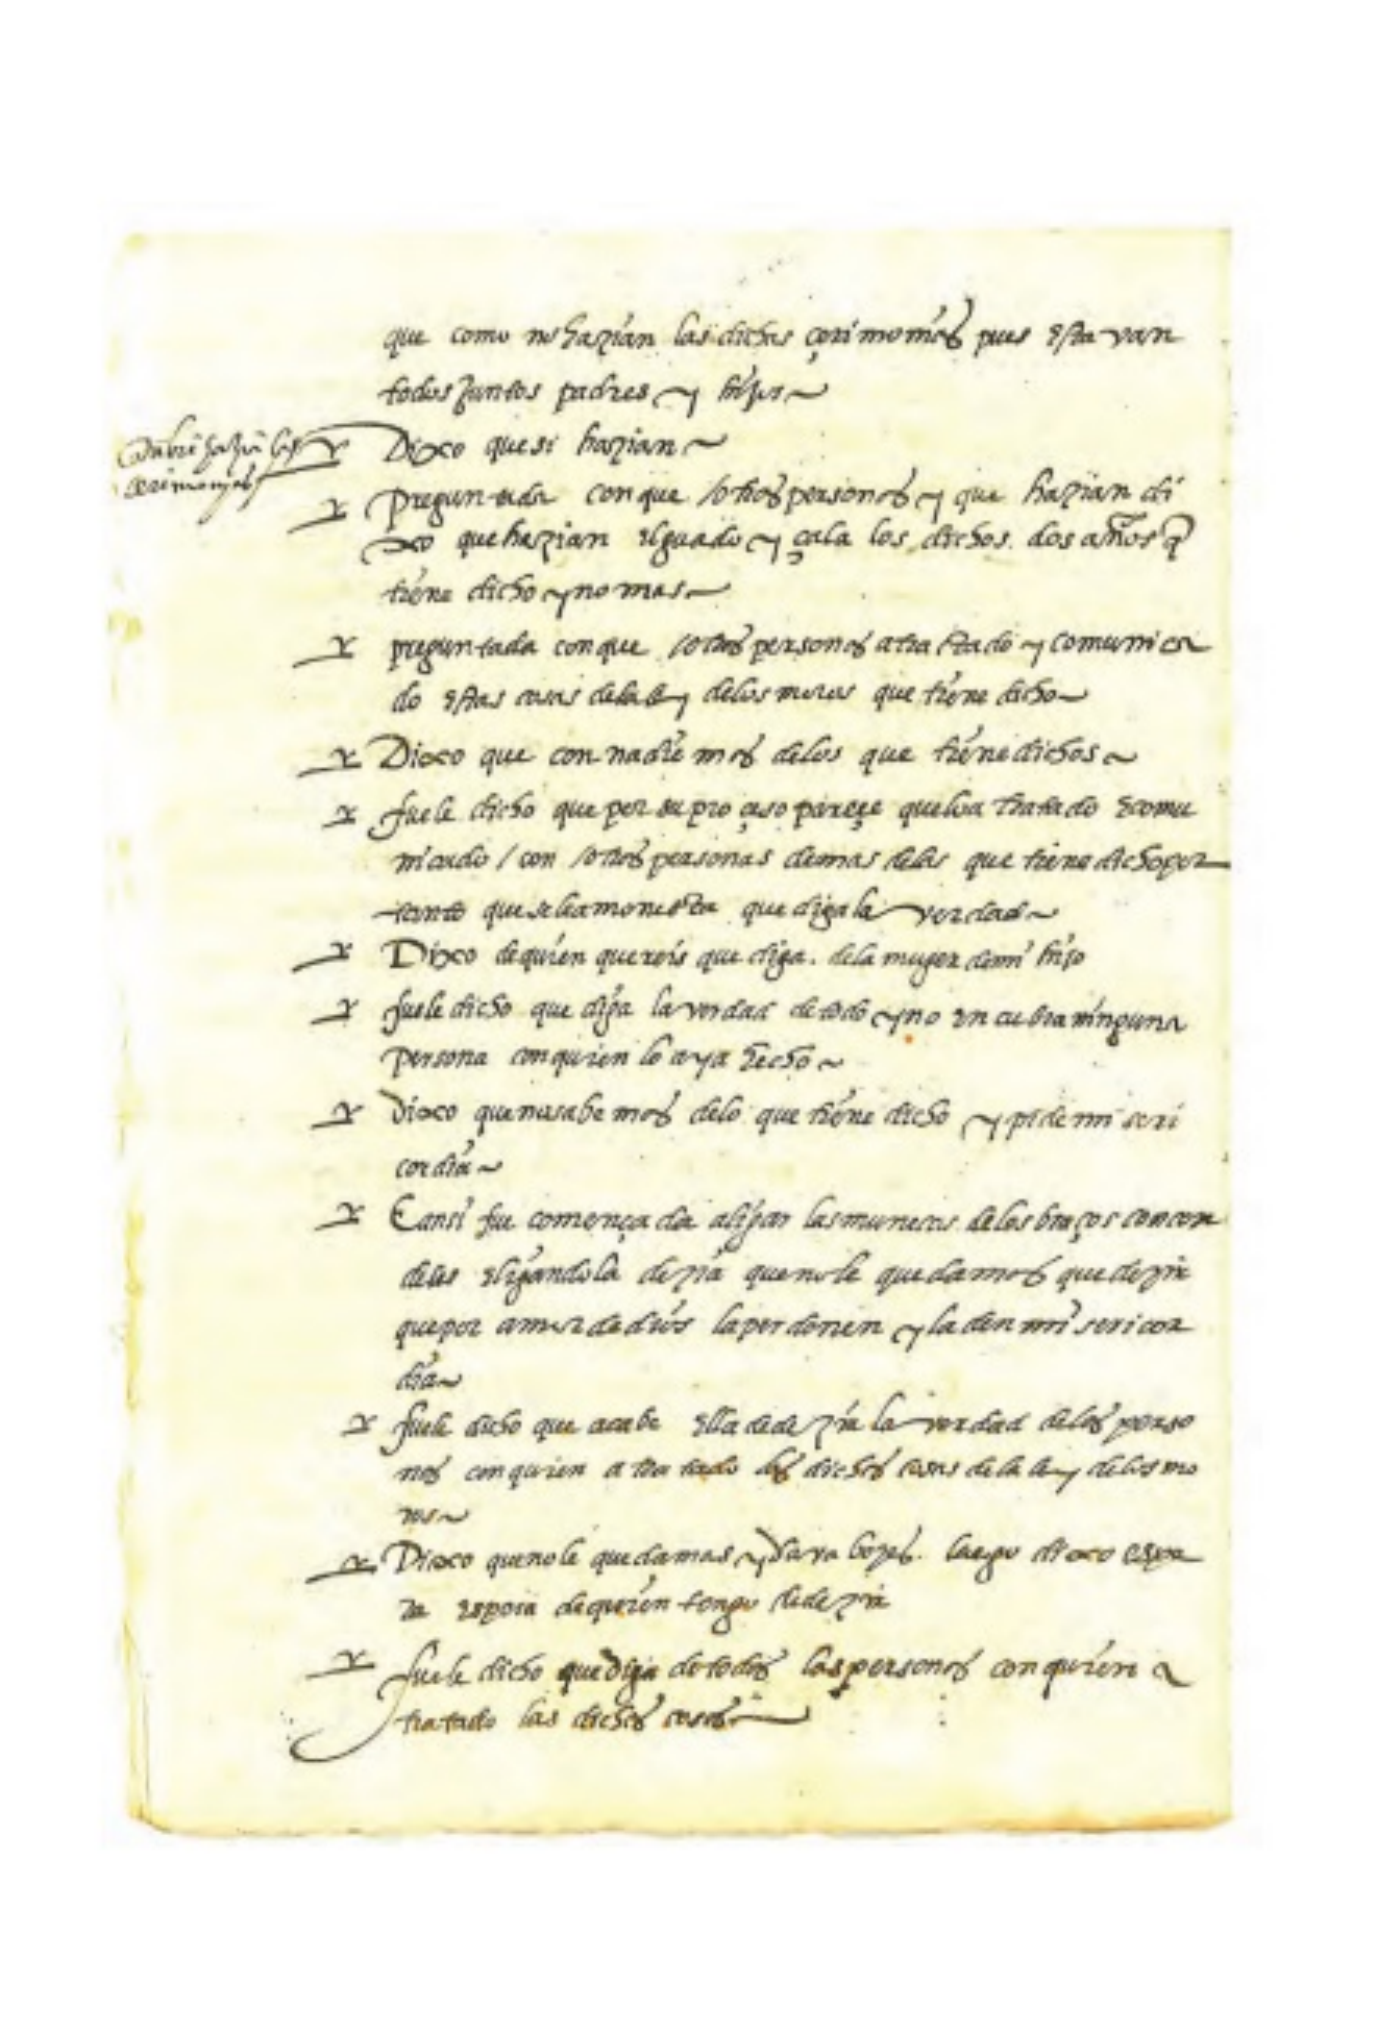 que como no hazian las dichas çerimonias pues estavan
todos juntos padres y hijos
hazian las
cerimonias
Dixo que si hazian
Preguntada con que otras personas y que hazian di
xo que hazian el guado y çala los dichos dos años q
tiene dicho y no mas
preguntada con que otras personas a tratado y comunica
do estas cosas de la ley de los moros que tiene dicho
Dixo que con nadie mas de los que tiene dichos
fuele dicho que por su proçeso pareçe que lo a tratado e comu
nicado / con otras personas demas de las que tiene dicho por
tanto que se le amonesta que diga la verdad
Dixo de quien quereis que diga. de la muger de mi hijo
fuele dicho que diga la verdad de todo y no encubra ninguna
persona con quien lo aya hecho
Dixo que no sabe mas de lo que tiene dicho y pide miseri
cordia
E ansi fue començada a ligar las munecas de los braços con cor
deles e ligandola dezia que no le queda mas que dezir
que por amor de dios la perdonen y la den misericor
dia
fuele dicho que acabe ella de dezir la verdad de las perso
nas con quien a tratado las dichas cosas de la ley de los mo
ros
Dixo que no le queda mas y dava bozes. luego dixo espe
ra espera de quien tengo de dezir
fuele dicho que diga de todas las personas con quien a
tratado las dichas cosas